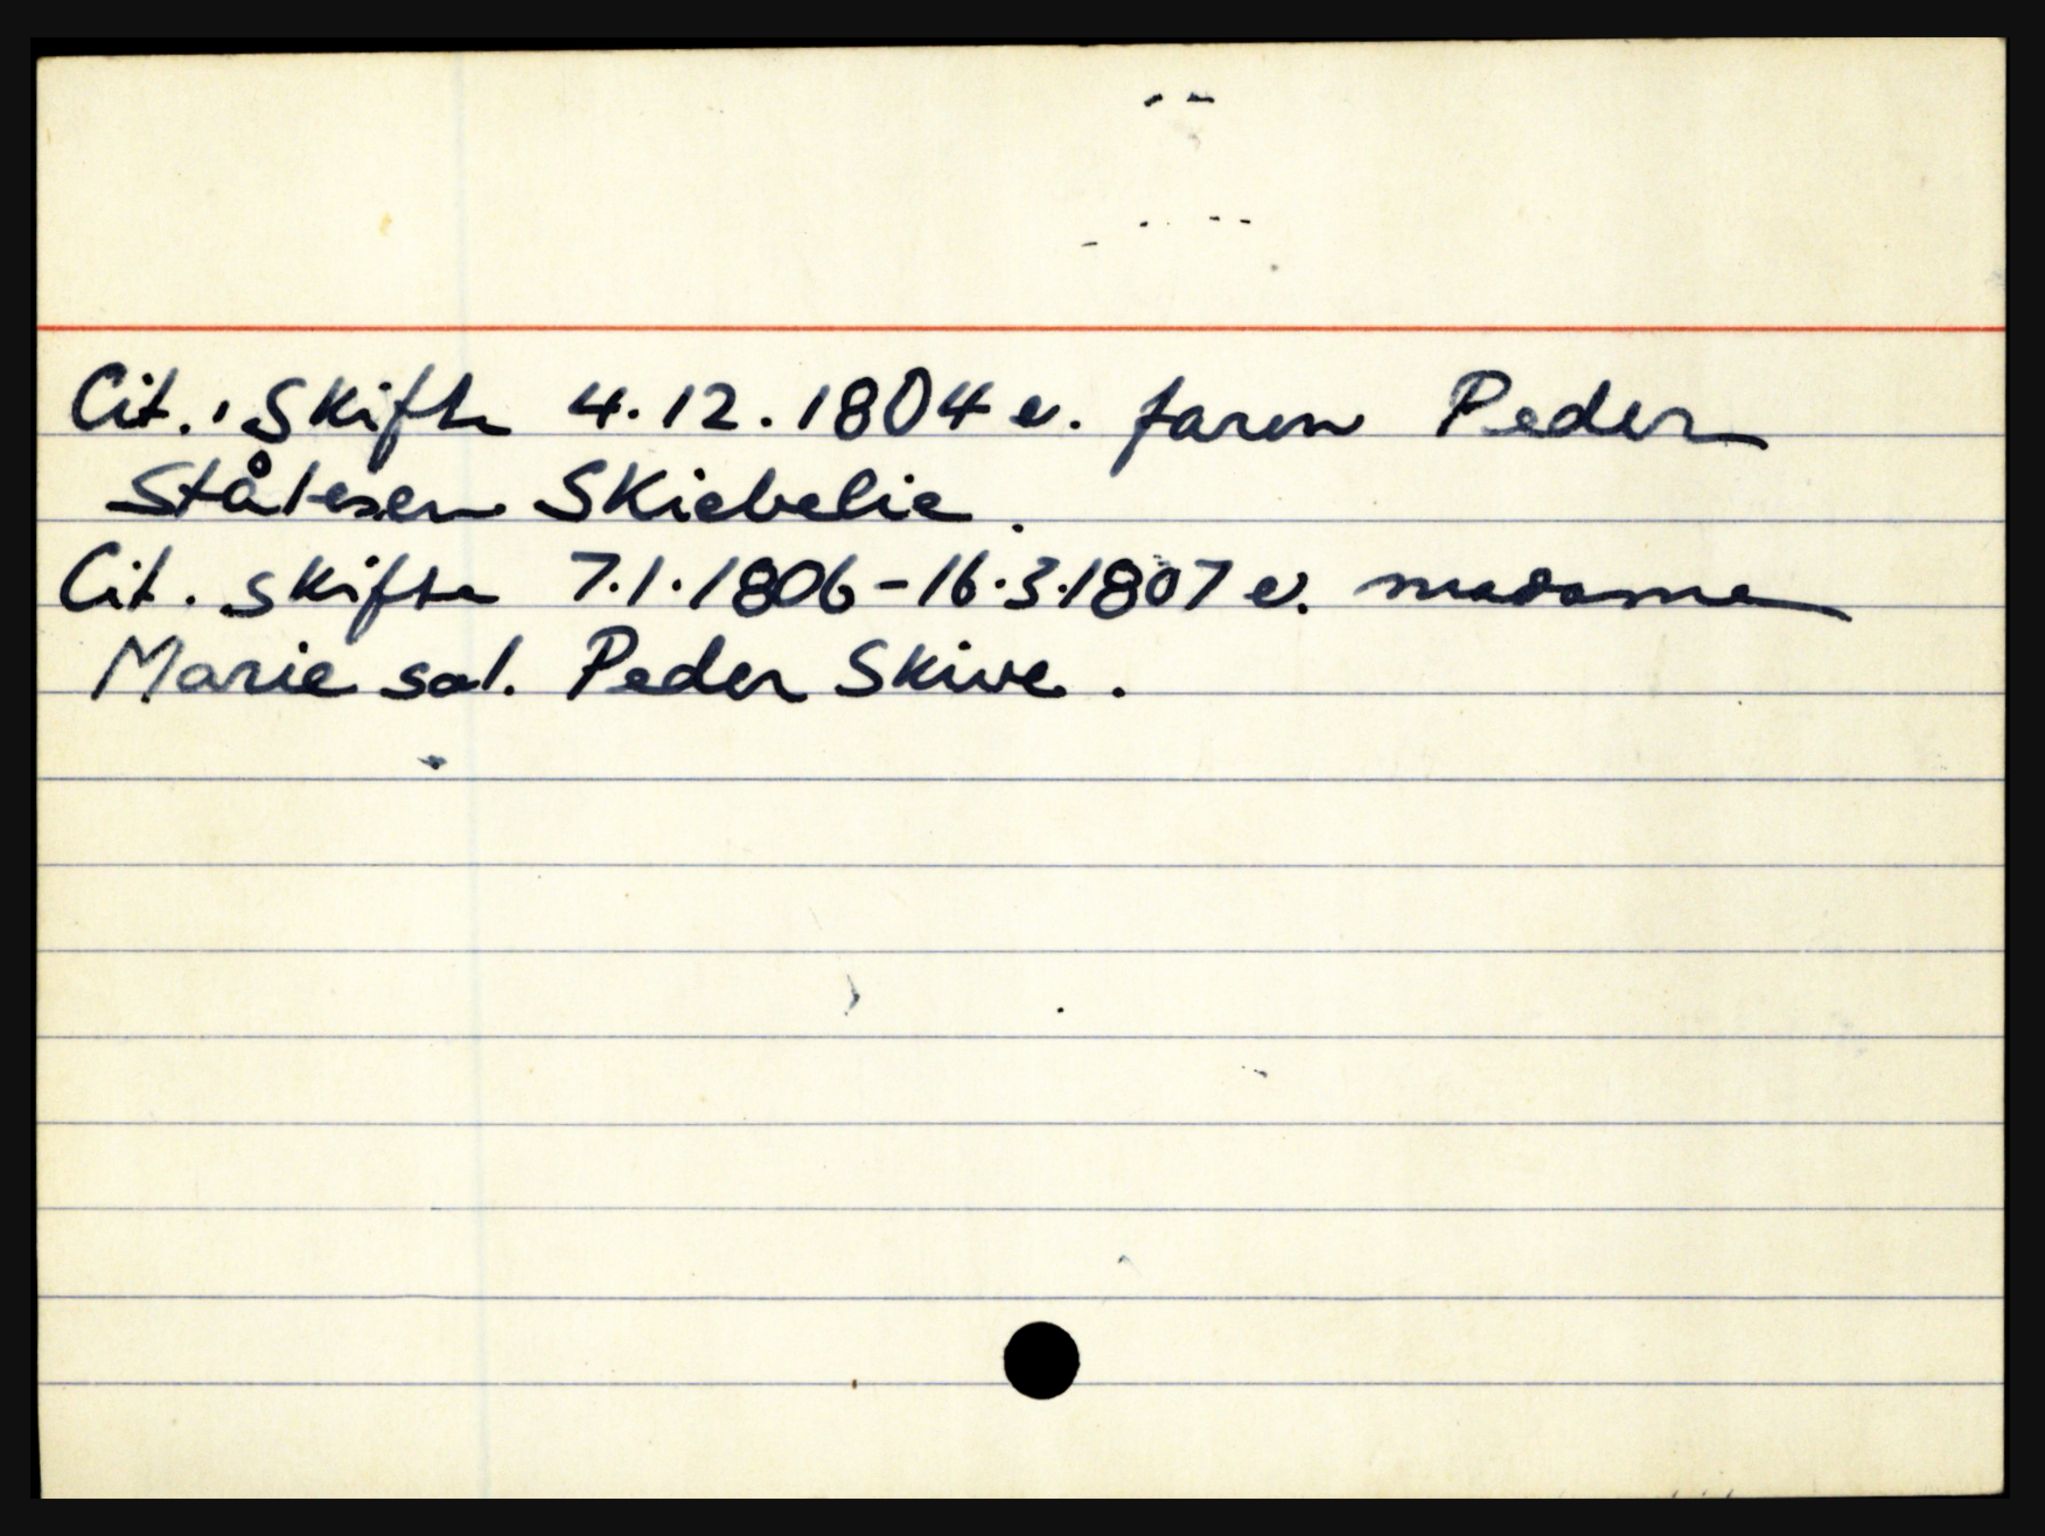 Cit. i skifte 4.12.1804 e. faren Peder
Stålesen Skiebelie.
Cit. skifte 7.1.1806-16.3.1807 e. madame
Marie sal. Peder Skive.